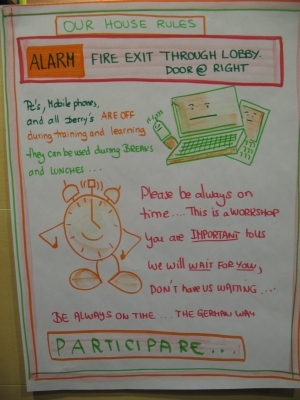 OUR HOUSE RULES
ALARM FIRE EXIT THROUGH LOBBY.
DOOR @ RIGHT
Pc's, Mobile phones,
and all berry's ARE OFF
during training and learning
they can be used during BREAKS
and LUNCHES ...
Please be always on
time .... This is a WORKSHOP
you are IMPORTANT to us
we will WAIT FOR YOU,
DON'T have us WAITING ....
BE ALWAYS ON TIME ... THE GERMAN WAY
PARTICIPARE...